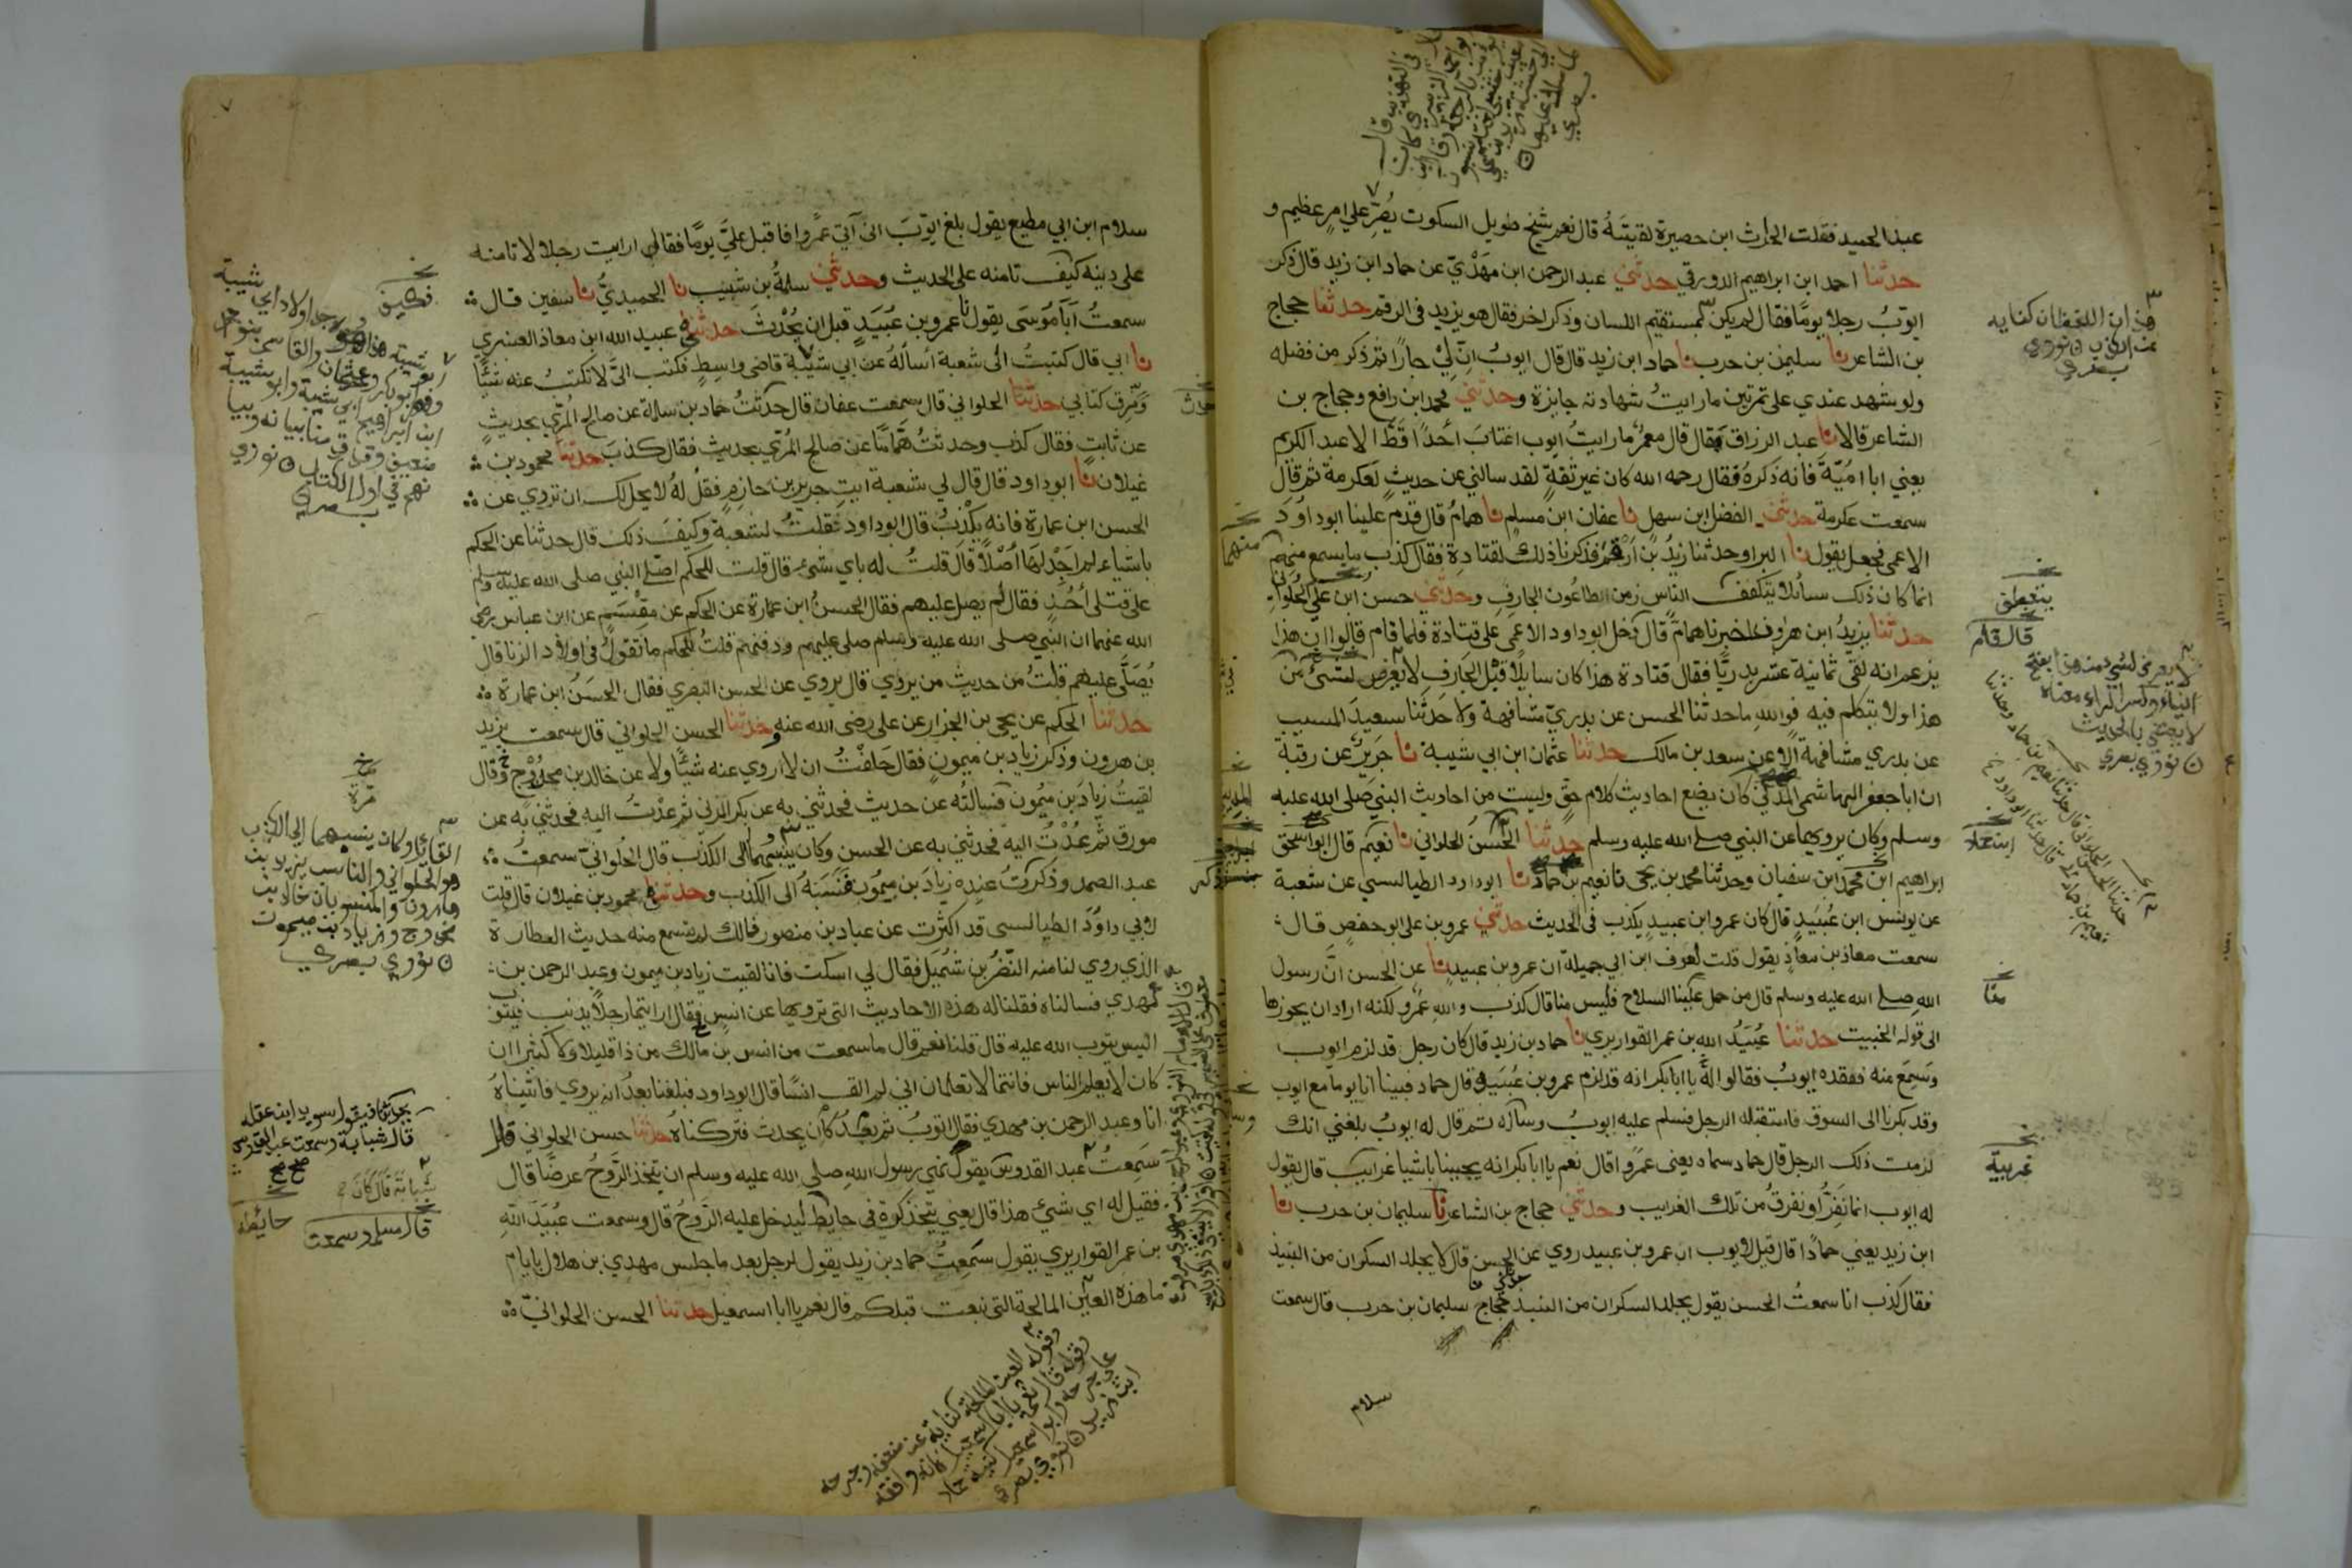 عبد الحميد فقلت الحارث ابن حصيرة لقيتَهُ قال نعم شيخ طويل السكوت يُصِرّ على امرٍ عظيم و
حدثنا احمد ابن ابراهيم الدورقي حدثني عبد الرحمن ابن مَهْدِيّ عن حماد ابن زيد قال ذكر
ايوبُ رجلا يومًا فقال لم يكن بمستقيم اللسان وذكر اخر فقال هو يزيد في الرقم حدثنا حجاج
بن الشاعر نا سليمن بن حرب نا حماد ابن زيد قال قال ايوبُ انّ لي جارًا ثم ذكر من فضله
ولو شهد عندي على تمرتين ما رايتُ شهادته جايزة وحدثني محمد ابن رافع وحجاج بن
الشاعر قالا نا عبد الرزاق قال قال معمرٌ ما رايتُ ايوب اغتابَ أحدًا قَطّ الا عبد الكريم
يعني ابا اميّة فانه ذكرهُ فقال رحمه الله كان غير ثقةٍ لقد سالني عن حديثٍ لعكرمة ثم قال
سمعت عكرمة حدثني الفضل ابن سهل نا عفان ابن مسلم نا همامُ قال قدم علينا ابو داوُدَ
الاعمى فجعل يقول نا البراو حدثنا زيدُ بن ارقم فذكرنا ذلك لقتادة فقال كذب ما سمع منهم
انما كان ذلك سائلا يتكفف الناس زمن الطاعُون الجارِفِ وحدثني حسنُ ابن علي الحُلوانيّ
حدثنا يزيدُ ابن هارون اخبرنا همامٌ قال دخل ابو داود الاعمى على قتادة فلما قام قالوا ان هذا
يزعم انه لقى ثمانية عشر بدريًّا فقال قتادة هذا كان سايلًا قبْل الجَارِف لا يعرِض لشئ من
هذا ولا يتكلم فيه فوالله ما حدثنا الحسن عن بدريّ مشافهة ولا حَدّثَنا سعيدُ المسيب
عن بدري مشافهة الا عن سعد بن مالك حدثنا عثمان ابن ابي شيبة نا جَريرٌ عن رقبة
ان ابا جعفر الهاشمي المدني كان يضع احاديث كلام حقّ وليست من احاديث النبي صلى الله عليه
وسلم وكان يرويها عن النبي صلى الله عليه وسلم حدثنا الحسنُ الحلواني نا نعيم قال ابو اسحق
ابراهيم ابن محمد ابن سفيان وحدثنا محمد بن يحيى نا نعيم بن حماد نا ابو داود الطيالسي عن شعبة
عن يونس ابن عُبَيدٍ قال كان عمرو ابن عبيدٍ يكذب في الحديث حدثني عمرو بن على ابو حفصٍ قال
سمعت معاذ بن معاذٍ يقول قلت لعوف ابن ابي جميلة ان عمرو بن عبيدٍ نا عن الحسن انَّ رسول
اللهِ صلى الله عليه وسلم قال من حمل علينا السلاح فليس منا قال كذب واللهِ عمرٌو لكنه اراد ان يحوزها
الى قوله الخبيث حدثنا عُبَيدُ الله بن عمر القواريري نا حماد بن زيدٍ قال كان رجل قد لزم ايوب
وسَمِعَ منه ففقده ايوبُ فقالوا له يا ابا بكر انه قد لزم عمرو بن عُبَيدٍ قال حماد فبينا انا يوما مع ايوب
وقد بكرنا الى السوق فاستقبله الرجل فسلم عليه ايوبُ وساله ثم قال له ايوبُ بلغني انك
لزمت ذلك الرجل قال حماد سماه يعني عمرًا قال نعم يا ابا بكر انه يجيبنا باشيا غرايب قال يقول
له ايوب انما نَفِرُّ او نفرقُ من تلك الغرايب وحدثني حجاج بن الشاعر نا سليمان بن حرب نا
ابن زيد يعني حمادًا قال قيل لايوب ان عمرو بن عبيد روي عن الحسن قال لا يجلد السكران من النبيذ
فقال كذب انا سمعتُ الحسن يقول يجلد السكران من النبيذ حجاج سليمان بن حرب قال سمعت
سلام
هذان اللفظان كناية
عن الكذب نووي
بصري
ينطق
قال قام
لا يعرض لشي من هذا بفتح
الياء وكسر الراء معناه
لا يعتني بالحديث
نووي بصري
منا
غريبة
سلام ابن ابي مطيع يقول بلغ ايّوبَ انّي آتي عمرًوا فاقبل عليَّ يومًا فقال ارايت رجلا لا تامنه
على دينه كيف تامنه على الحديث وحدثني سلمةُ بن شبيب نا الحميديُّ نا سفين قال
سمعتُ أبَا مُوسَى يقول نا عمرو بن عُبَيدٍ قبل ان يُحْدِثَ حدثني عبيد الله ابن معاذ العنبري
نا ابي قال كتبتُ الى شعبة أسألهُ عن ابي شيبة قاضى واسِطٍ فكتب اليَّ لا تكتبْ عنه شيئًا
ومَزِّق كتابي حدثنا الحلواني قال سمعت عفان قال حدّثتُ حماد بن سلمة عن صالح المُرّيّ بحديثٍ
عن ثابتٍ فقال كذب وحدثتُ هَمّامًا عن صالح المُرّي بحديث فقال كذبَ حدثنا محمود بن
غيلان نا ابو داود قال قال لي شعبة ايتِ جرير بن حازِمٍ فقُل لهُ لا يحل لك ان تروي عن
الحسن ابن عمارة فانه يكْذِبُ قال ابو داود فقلتُ لشعبة وكيفَ ذلك قال حدثنا عن الحكم
باشياء لم اجِدْ لهَا أصْلًا قالَ قلتُ له باي شئ قال قلت للحكم اصلّى النبي صلى الله عليه وسلم
على قتلى أُحُدٍ فقال لم يصل عليهم فقال الحسنُ ابن عمارة عن الحكم عن مِقْسَمٍ عن ابن عباس رضي
الله عنهما ان النبي صلى الله عليه وسلم صلى عليهم ودفنهم قلتُ للحكم ما تقولُ في اولاد الزنا قال
يُصَلَّى عليهم قلْتُ من حديث من يروي قال يروي عن الحسن البصري فقال الحسَنُ ابن عمارة
حدثنا الحكم عن يحيى بن الجزار عن على رضى الله عنه وحدثنا الحسن الحلواني قال سمعت يزيد
بن هرون وذكر زياد بن ميمونٍ فقال حَلفْتُ ان لا اروي عنه شيئًا ولا عن خالد بن محدُوج وقال
لقيتُ زيادَ بن ميمون فسالتُه عن حديث فحدثني به عن بكر المزني ثم عدْتُ اليه فحدثني به عن
مورق ثم عُدْتُ اليه فحدثني به عن الحسن وكان ينسِبُهما الى الكذب قال الحُلوانيّ سمعتُ
عبد الصمد وذكرتُ عنده زيادَ بن ميمُون فنسَبَهُ الى الكذب وحدثنا محمود بن غيلان قال قلت
لابي داوُدَ الطيالسى قد اكثرت عن عباد بن منصور فمالك لم تسمع منه حديث العطارة
الذي روي لنا منه النضْرُ بن شُمَيل فقال لي اسكت فانا لقيت زياد بن ميمون وعبد الرحمن بن
مهدي فسالناه فقلنا له هذه الاحاديث التى ترويها عن انسٍ فقال ارايتما رجلًا يذنب فيتوب
اليس يتوب الله عليه قال قلنا نعم قال ما سمعت من انس بن مالك من ذا قليلا ولا كثيرا ان
كان لا يعلم الناس فانتما لا تعلمان اني لم الق انسًا قال ابو داود فبلغنا بعدُ انه يروي فاتيناهُ
انا وعبد الرحمن بن مهدي فقال اتوبُ ثم بعْدُ كان يحدث فتركناهُ حدثنا حسن الحلواني قال
سَمِعتُ عبد القدوس يقول نهى رسول اللهِ صلى الله عليه وسلم ان يتخذ الرَّوحُ عرضًا قال
فقيل له اي شيئ هذا قال يعني يتخذ كوة في حايط ليدخل عليه الرَّوحُ قال وسمعت عُبَيدَ اللّهِ
بن عمر القواريري يقول سَمِعتُ حماد بن زيد يقول لرجل بعد ما جلس مهدي بن هلال بايام
ما هذه العين المالحة التى نبعت قبلكم قال نعم يا ابا اسمعيل حدثنا الحسن الحلوانيّ
فكيف
ضعيف وقد قدمنا بيانه وبيا
نهم في اول الكتاب نووي
بصري
مرة
القائل وكان ينسبهما الى الكذب
هو الحلواني والناسب يزيد بن
هارون والمنسوبان خالد بن
محدوج وزياد بن ميمون
نووي بصري
يحدثنا فيقول سويد ابن عقله
قال شبابة وسمعت عبد القدوس
شبابة قال كان
قال مسلم وسمعت
حائطه
وقوله العين المالحة كناية عن ضعفه وجرحه
وقوله قال نعم يا ابا اسمعيل كانه وافقه
على جرحه وابو اسمعيل كنية حماد
ابن زيد نووي بصري